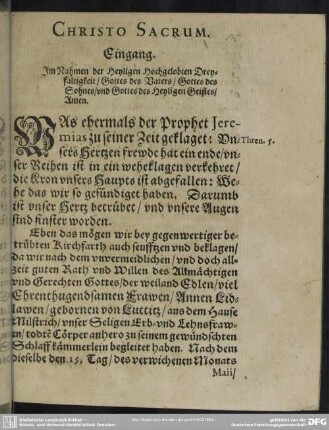 CHRISTO SACRUM.
Eingang.
Im Nahmen der Heyligen Hochgelobten Drey-
faltigkeit/ Gottes des Vaters/ Gottes des
Sohnes/ und Gottes des Heyligen Geistes/
Amen.
WAs ehermals der Prophet Jere-
mias zu seiner Zeit geklaget: Vn- Thren. 5.
sers Hertzen frewde hat ein ende/ vn-
ser Reihen ist in ein weheklagen verkehret/
die Kron vnsers Haupts ist abgefallen: We-
he das wir so gesündiget haben. Darumb
ist vnser Hertz betrübet/ vnd vnsere Augen
sind finster worden.
Eben das mögen wir bey gegenwertiger be-
trübten Kirchfarth auch seufftzen vnd beklagen/
Da wir nach dem vnvermeidlichen/ vnd doch all-
zeit guten Rath vnd Willen des Allmächtigen
vnd Gerechten Gottes/ der weiland Edlen/ viel
Ehrenthugendsamen Frawen/ Annen Lid-
lawen/ gebornen von Luttitz/ aus dem Hause
Milstrich/ vnser Seligen Erb- vnd Lehnsfraw-
en/ todte Cörper anhero zu seinem gewündschten
Schlaffkämmerlein begleitet haben. Nach dem
dieselbe den 15. Tag/ des verwichenen Monats
Maii/